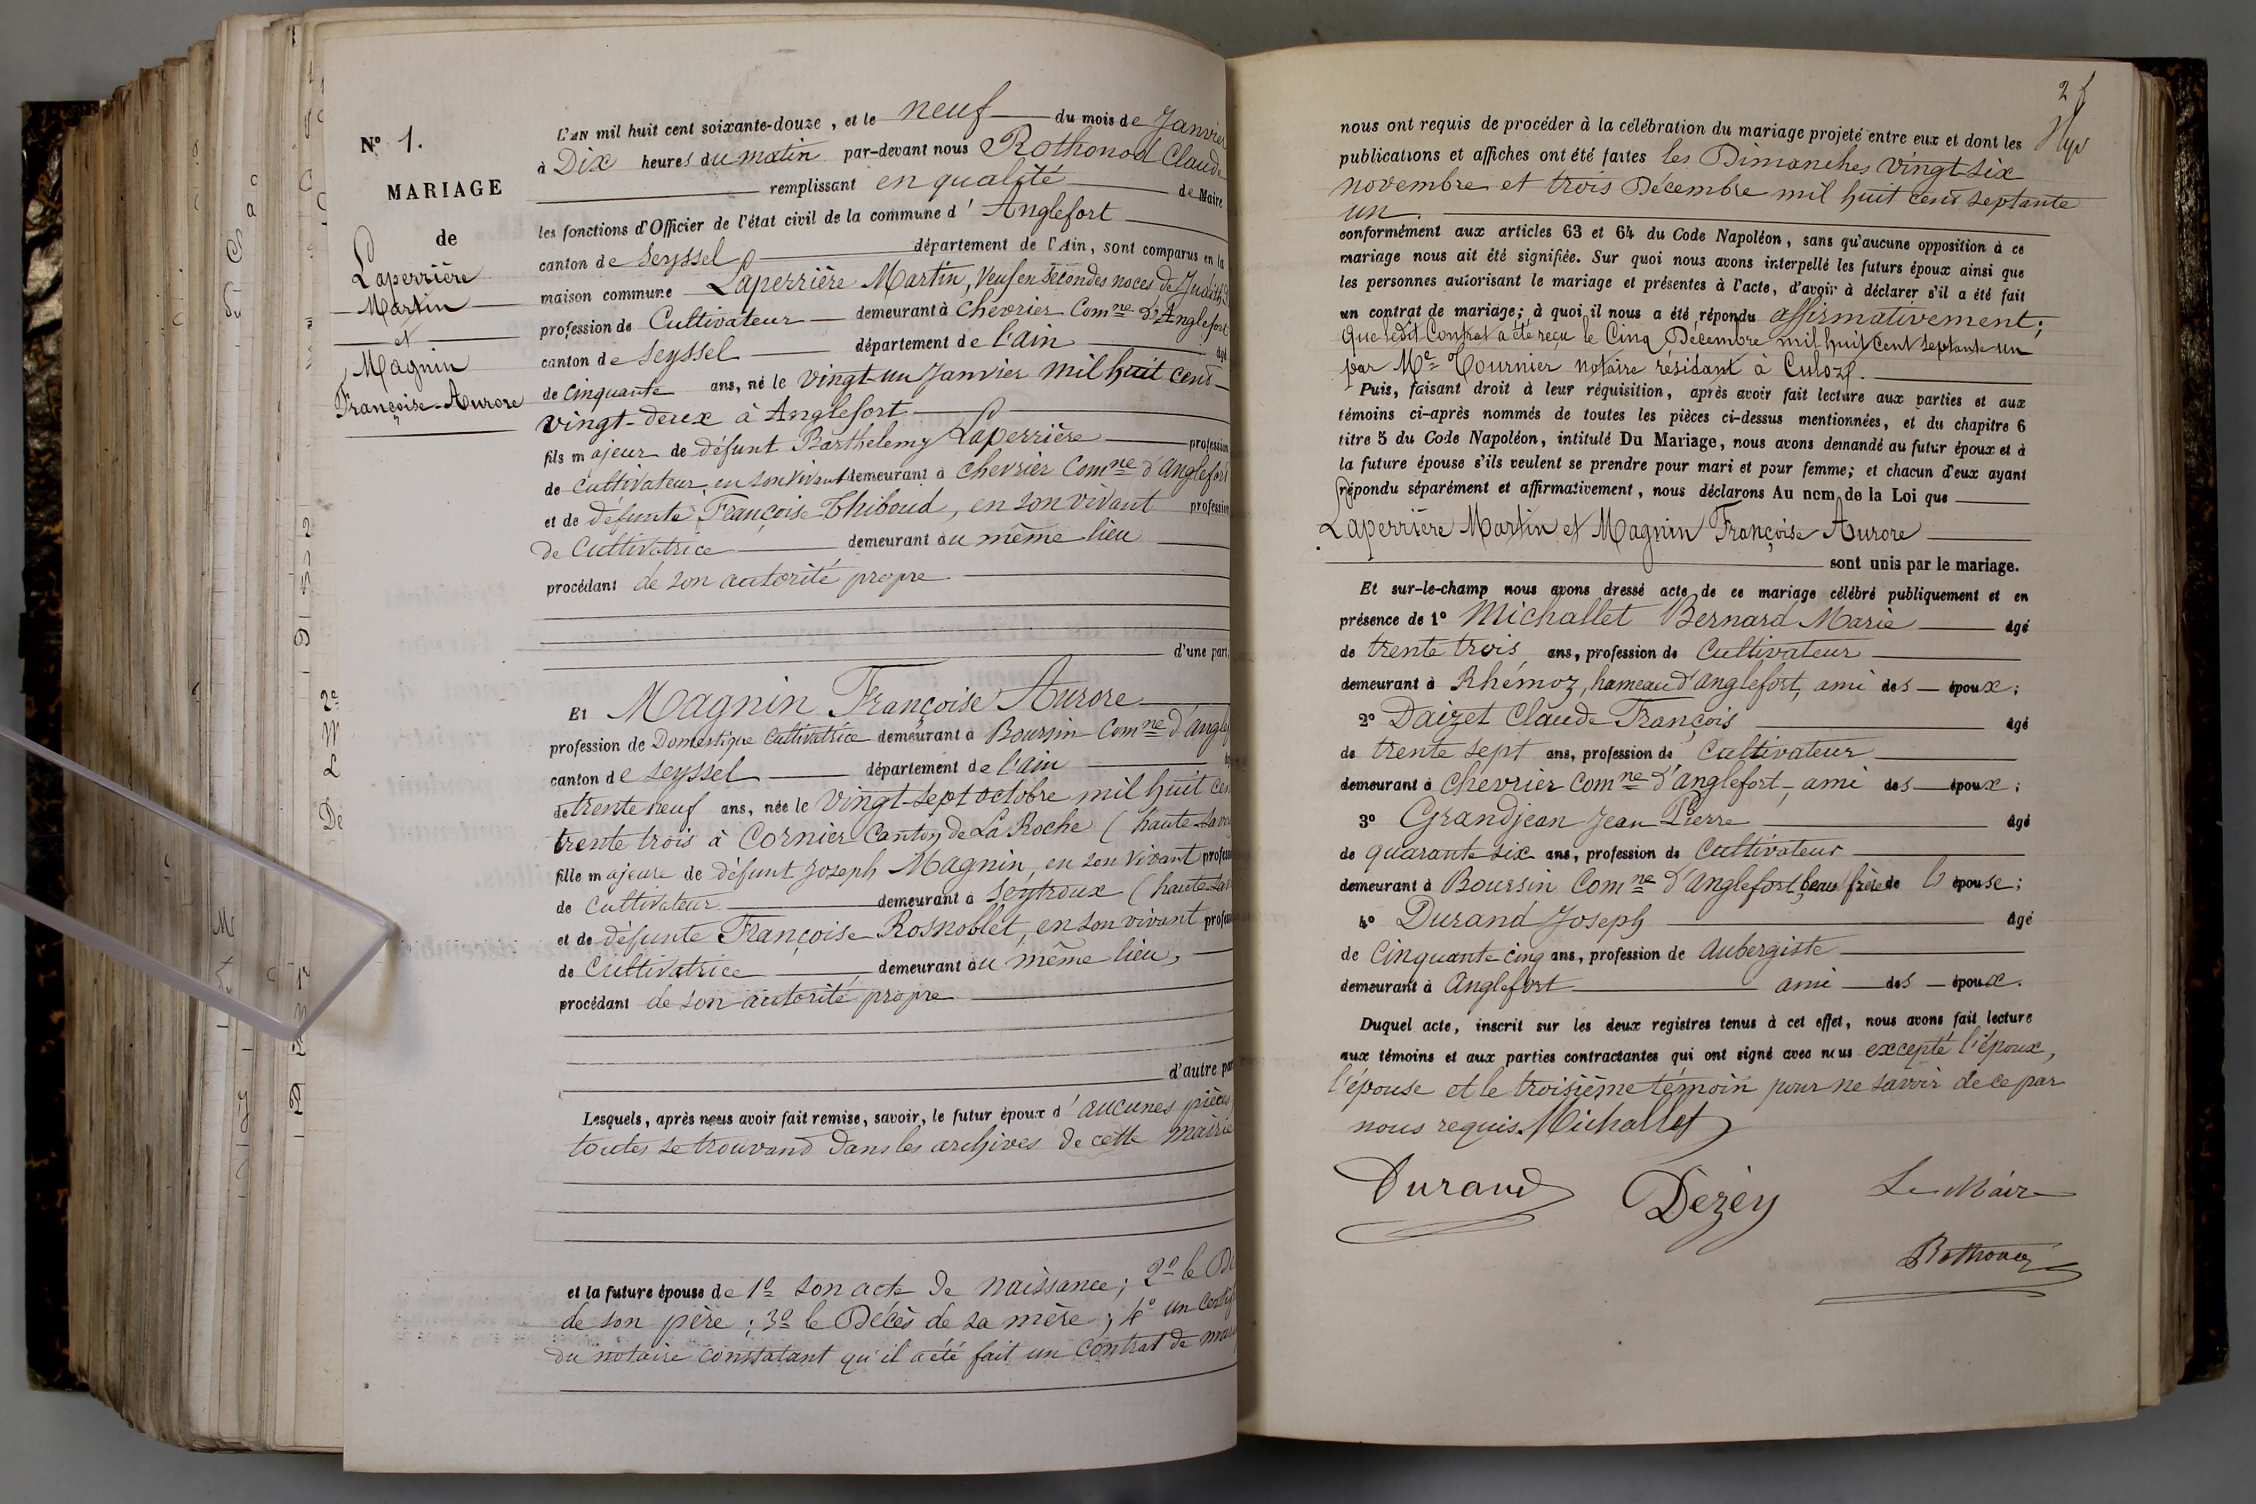 N° 1.
MARIAGE
de
Laperrière
Martin
et
Magnin
Françoise-Aurore
L'AN mil huit cent soixante-douze, et le neuf du mois de Janvier
à Dix heures du matin par-devant nous Rothonod Claude
remplissant en qualité de Maire
les fonctions d'Officier de l'état civil de la commune d'Anglefort
canton de Seyssel département de l'Ain, sont comparus en la
maison commune Laperrière Martin, Veuf en secondes noces de Judith
profession de Cultivateur demeurant à Chevrier Comne d'Anglefort
canton de Seyssel département de l'ain âgé
de Cinquante ans, né le vingt-un Janvier mil huit cent
vingt-deux à Anglefort
fils majeur de défunt Barthelemy Laperrière profession
de Cultivateur, en son vivant demeurant à Chevrier Comne d'Anglefort
et de défunte Françoise Thiboud, en son vivant profession
de Cultivatrice demeurant au même lieu
procédant de son autorité propre
d'une part,
Et Magnin Françoise Aurore
profession de Domestique Cultivatrice demeurant à Boursin Comne d'Anglef
canton de Seyssel département de l'ain
de trente neuf ans, née le Vingt-sept octobre mil huit cen
trente trois à Cornier Canton de La Roche (haute-Savo
fille majeure de défunt Joseph Magnin, en son vivant profess
de Cultivateur demeurant à Seytroux (haute-Sav
et de défunte Françoise Rosnoblet, en son vivant profess
de Cultivatrice demeurant au même lieu,
procédant de son autorité propre
d'autre par
Lesquels, après nous avoir fait remise, savoir, le futur époux d'aucunes pièces,
toutes se trouvant dans les archives de cette mairie
et la future épouse de 1° son acte de naissance; 2° le Dé
de son père; 3° le Décès de sa mère; 4° un certif
du notaire constatant qu'il a été fait un contrat de mar
2
nous ont requis de procéder à la célébration du mariage projeté entre eux et dont les
publications et affiches ont été faites les Dimanches vingt-six
novembre et trois Décembre mil huit cent septante
un.
conformément aux articles 63 et 64 du Code Napoléon, sans qu'aucune opposition à ce
mariage nous ait été signifiée. Sur quoi nous avons interpellé les futurs époux ainsi que
les personnes autorisant le mariage et présentes à l'acte, d'avoir à déclarer s'il a été fait
un contrat de mariage; à quoi il nous a été répondu affirmativement;
Que ledit Contrat a été reçu le Cinq Décembre mil huit Cent septante un
par Me Tournier notaire résidant à Culoz.
Puis, faisant droit à leur réquisition, après avoir fait lecture aux parties et aux
témoins ci-après nommés de toutes les pièces ci-dessus mentionnées, et du chapitre 6
titre 5 du Code Napoléon, intitulé Du Mariage, nous avons demandé au futur époux et à
la future épouse s'ils veulent se prendre pour mari et pour femme; et chacun d'eux ayant
répondu séparément et affirmativement, nous déclarons Au nom de la Loi que
Laperrière Martin et Magnin Françoise Aurore
sont unis par le mariage.
Et sur-le-champ nous avons dressé acte de ce mariage célébré publiquement et en
présence de 1° Michallet Bernard Marie âgé
de trente trois ans, profession de Cultivateur
demeurant à Rhémoz, hameau d'Anglefort, ami des époux;
2° Daizet Claude François âgé
de trente sept ans, profession de Cultivateur
demeurant à Chevrier Comne d'Anglefort, ami des époux;
3° Grandjean Jean Pierre âgé
de quarante six ans, profession de Cultivateur
demeurant à Boursin Comne d'Anglefort, beau frère de l'épouse;
4° Durand Joseph âgé
de Cinquante cinq ans, profession de Aubergiste
demeurant à Anglefort ami des époux.
Duquel acte, inscrit sur les deux registres tenus à cet effet, nous avons fait lecture
aux témoins et aux parties contractantes qui ont signé avec nous excepté l'époux,
l'épouse et le troisième témoin pour ne savoir de ce par
nous requis. Michallet
Durand Dezéy Le Maire
Rothonod